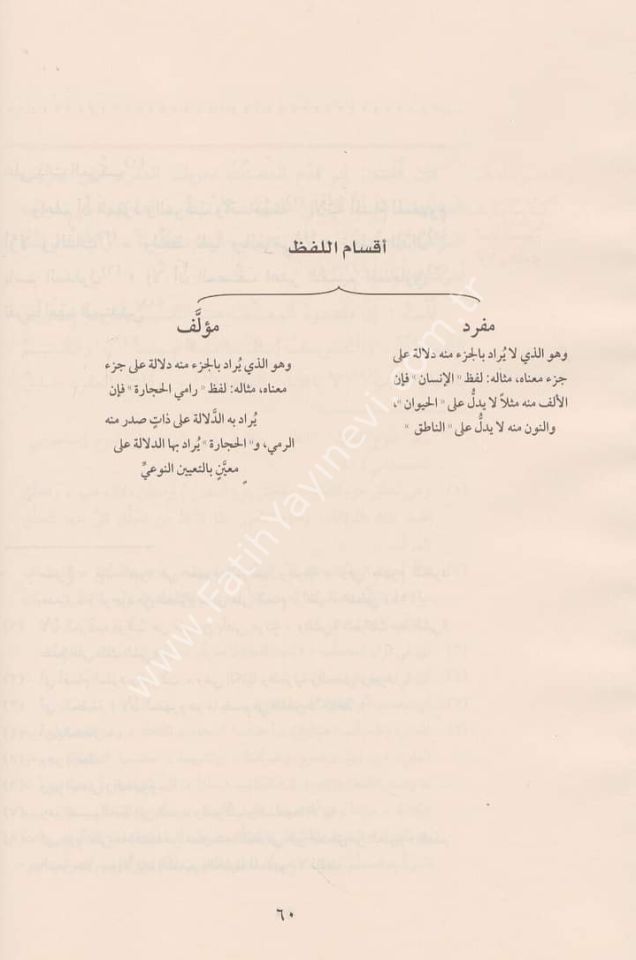 أقسام اللفظ
مفرد
وهو الذي لا يُراد بالجزء منه دلالة على
جزء معناه، مثاله: لفظ "الإنسان" فإن
الألف منه مثلاً لا يدلُّ على "الحيوان"،
والنون منه لا يدلُّ على "الناطق"
مؤلَّف
وهو الذي يُراد بالجزء منه دلالة على جزء
معناه، مثاله: لفظ "رامي الحجارة" فإن
يُراد به الدَّلالة على ذاتٍ صدر منه
الرمي، و"الحجارة" يُراد بها الدلالة على
معيَّنٍ بالتعيين النوعيِّ
www.FatihYayinevi.com.tr
٦٠